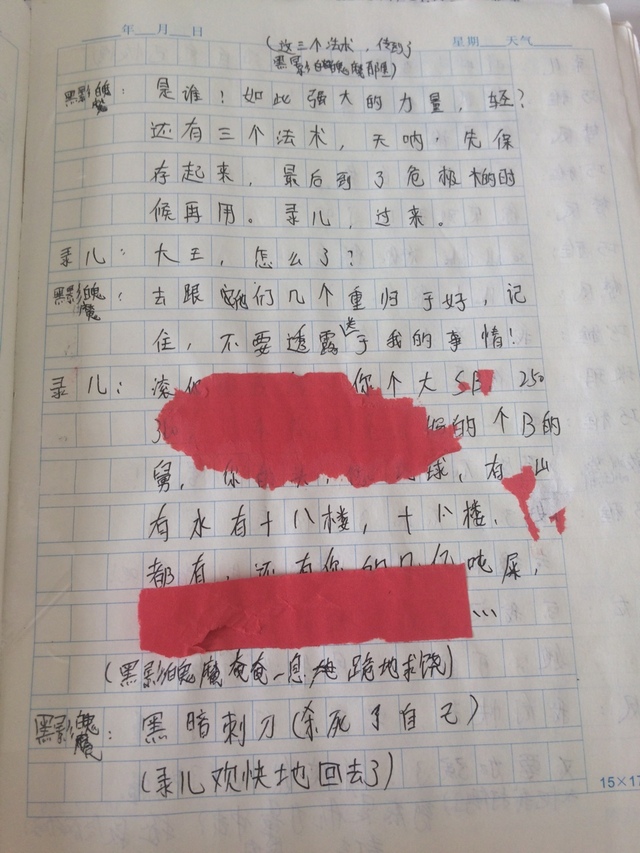 年 月 日
星期 天气
(这三个法术，传到了
黑影魄魔那里)
黑影魄魔：是谁！如此强大的力量，轻？
还有三个法术，天呐，先保
存起来，最后到了危极的时
候再用。录儿，过来。
录儿：大王，怎么了？
黑影魄魔：去跟他们几个重归于好，记
住，不要透露关于我的事情！
录儿：滚 你个大SB 250
的个B的
舅，你 球，有山
有水有十八楼，十八楼
都有，还有你的几亿吨屎，
…
(黑影魄魔奄奄一息 跪地求饶)
黑影魄魔：黑暗刺刀(杀死了自己)
(录儿欢快地回去了)
15×17